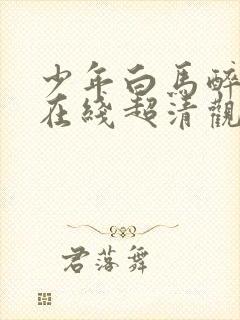 少年白馬醉
在綫超清觀
君落舞